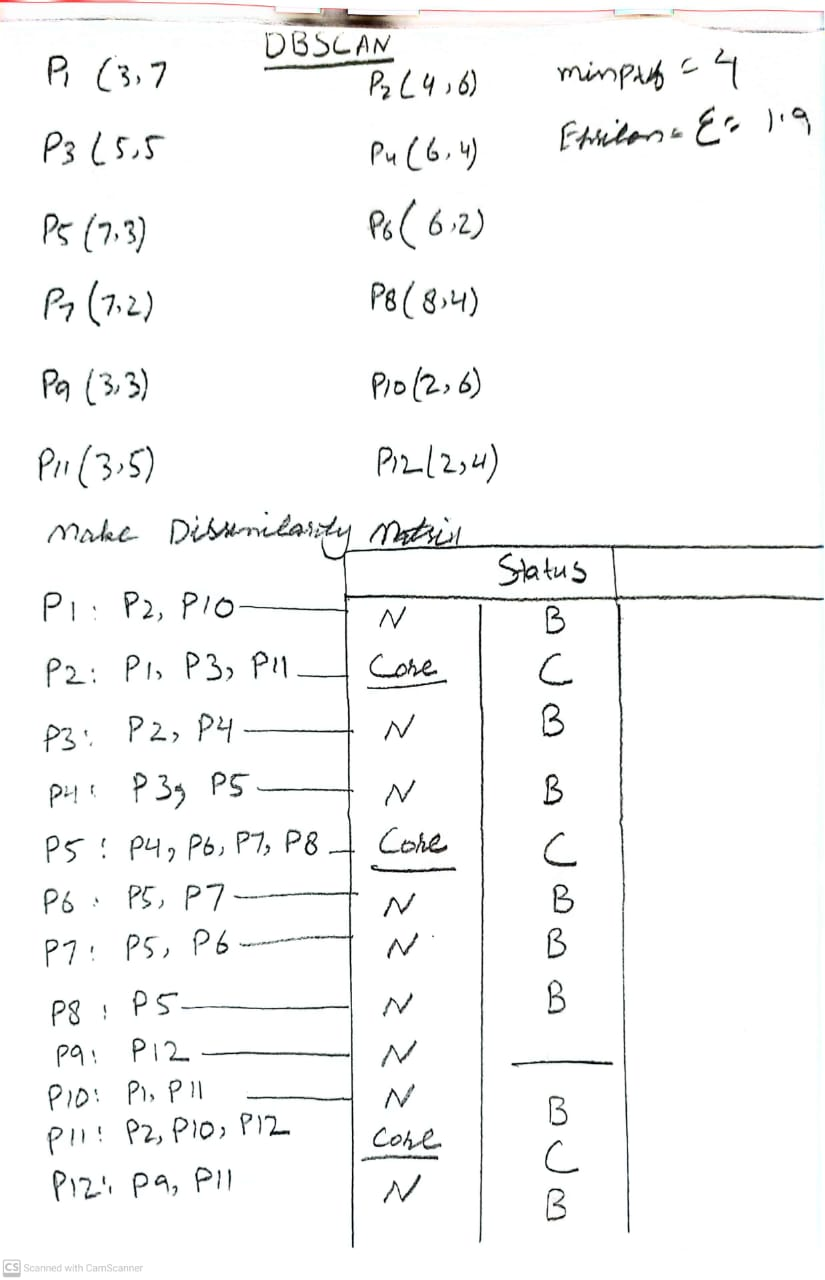 DBSCAN
P1 (3,7
P2 (4,6)
minpts = 4
P3 (5,5
P4 (6,4)
Epsilon = ε = 1.9
P5 (7,3)
P6 (6,2)
P7 (7,2)
P8 (8,4)
P9 (3,3)
P10 (2,6)
P11 (3,5)
P12 (2,4)
Make Dissimilarity Matrix
Status
P1: P2, P10 N B
P2: P1, P3, P11 Core C
P3: P2, P4 N B
P4: P3, P5 N B
P5: P4, P6, P7, P8 Core C
P6: P5, P7 N B
P7: P5, P6 N B
P8: P5 N B
P9: P12 N —
P10: P1, P11 N B
P11: P2, P10, P12 Core C
P12: P9, P11 N B
CS Scanned with CamScanner